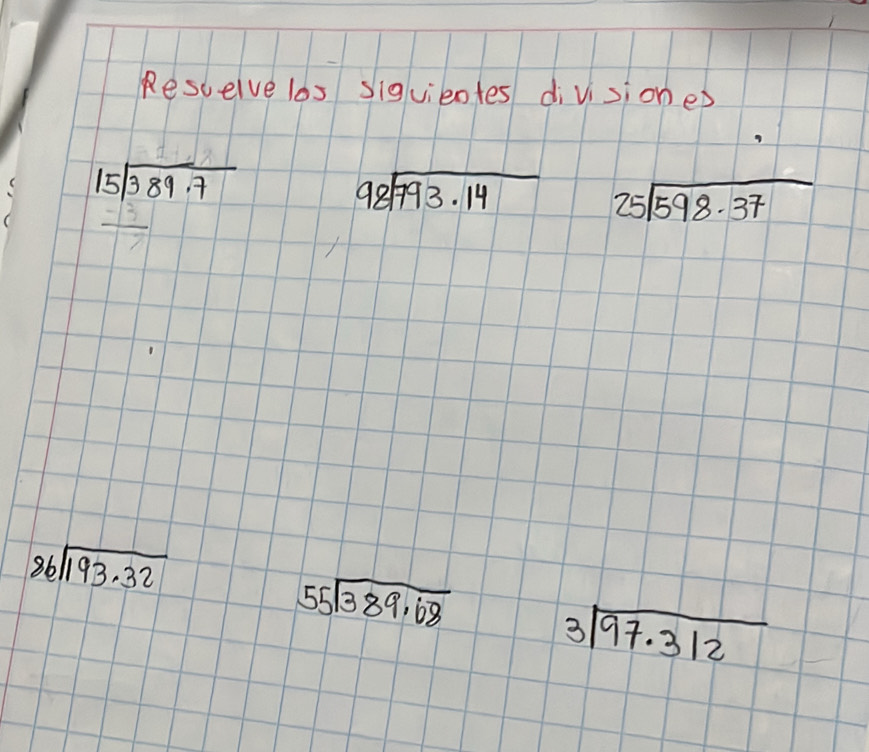 Resuelve los siguientes divisiones
15 389.7
98 793.14
25 598.37
86 193.32
55 389.68
3 97.312